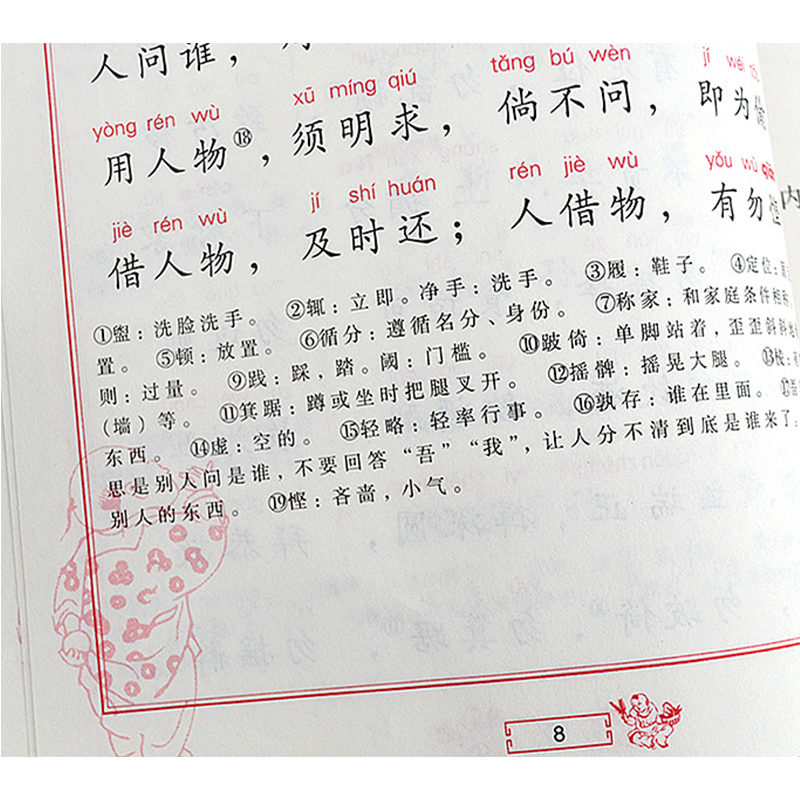 人问谁，
yòng rén wù xū míng qiú tǎng bú wèn jí wéi
用人物⑱，须明求，倘不问，即为偷
jiè rén wù jí shí huán rén jiè wù yǒu wù qiān
借人物，及时还；人借物，有勿悭
①盥：洗脸洗手。 ②辄：立即。净手：洗手。 ③履：鞋子。 ④定位：
置。 ⑤顿：放置。 ⑥循分：遵循名分、身份。 ⑦称家：和家庭条件相称。
则：过量。 ⑨践：踩，踏。阈：门槛。 ⑩跛倚：单脚站着，歪歪斜斜地
（墙）等。 ⑪箕踞：蹲或坐时把腿叉开。 ⑫摇髀：摇晃大腿。 ⑬
东西。 ⑭虚：空的。 ⑮轻略：轻率行事。 ⑯孰存：谁在里面。 ⑰吾
思是别人问是谁，不要回答“吾”“我”，让人分不清到底是谁来了。
别人的东西。 ⑲悭：吝啬，小气。
内
8